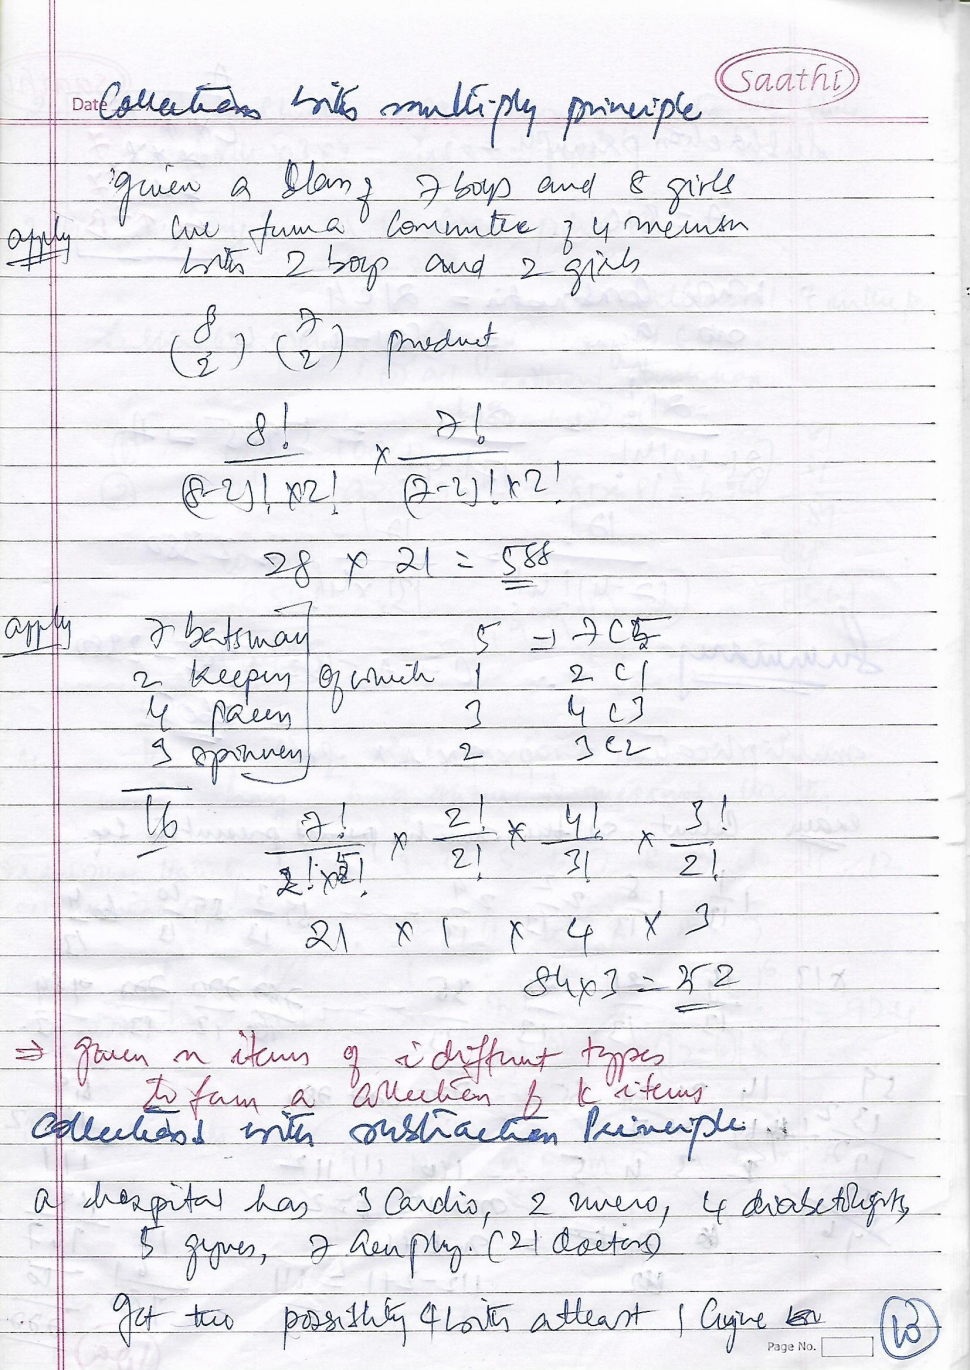 Saathi
Date Collections with multiply principle
given a class of 7 boys and 8 girls
apply we form a Committee of 4 members
with 2 boys and 2 girls
(8 2) (7 2) product
8! / (8-2)! x2! x 7! / (7-2)! x2!
28 x 21 = 588
apply 7 batsman 5 = 7C5
2 keepers of which 1 2 C1
4 pacers 3 4 C3
3 spinners 2 3 C2
16
7! / 2! x 5! x 2! / 2! x 4! / 3! x 3! / 2!
21 x 1 x 4 x 3
84x3 = 252
⇒ given n items of i different types
to form a collection of k items
Collections with substraction Principle
a hospital has 3 Cardio, 2 nuero, 4 diabetologists,
5 gynes, 7 Gen phy. (21 doctors)
get two possiblity 4 with atleast 1 Gyne
Page No. 13